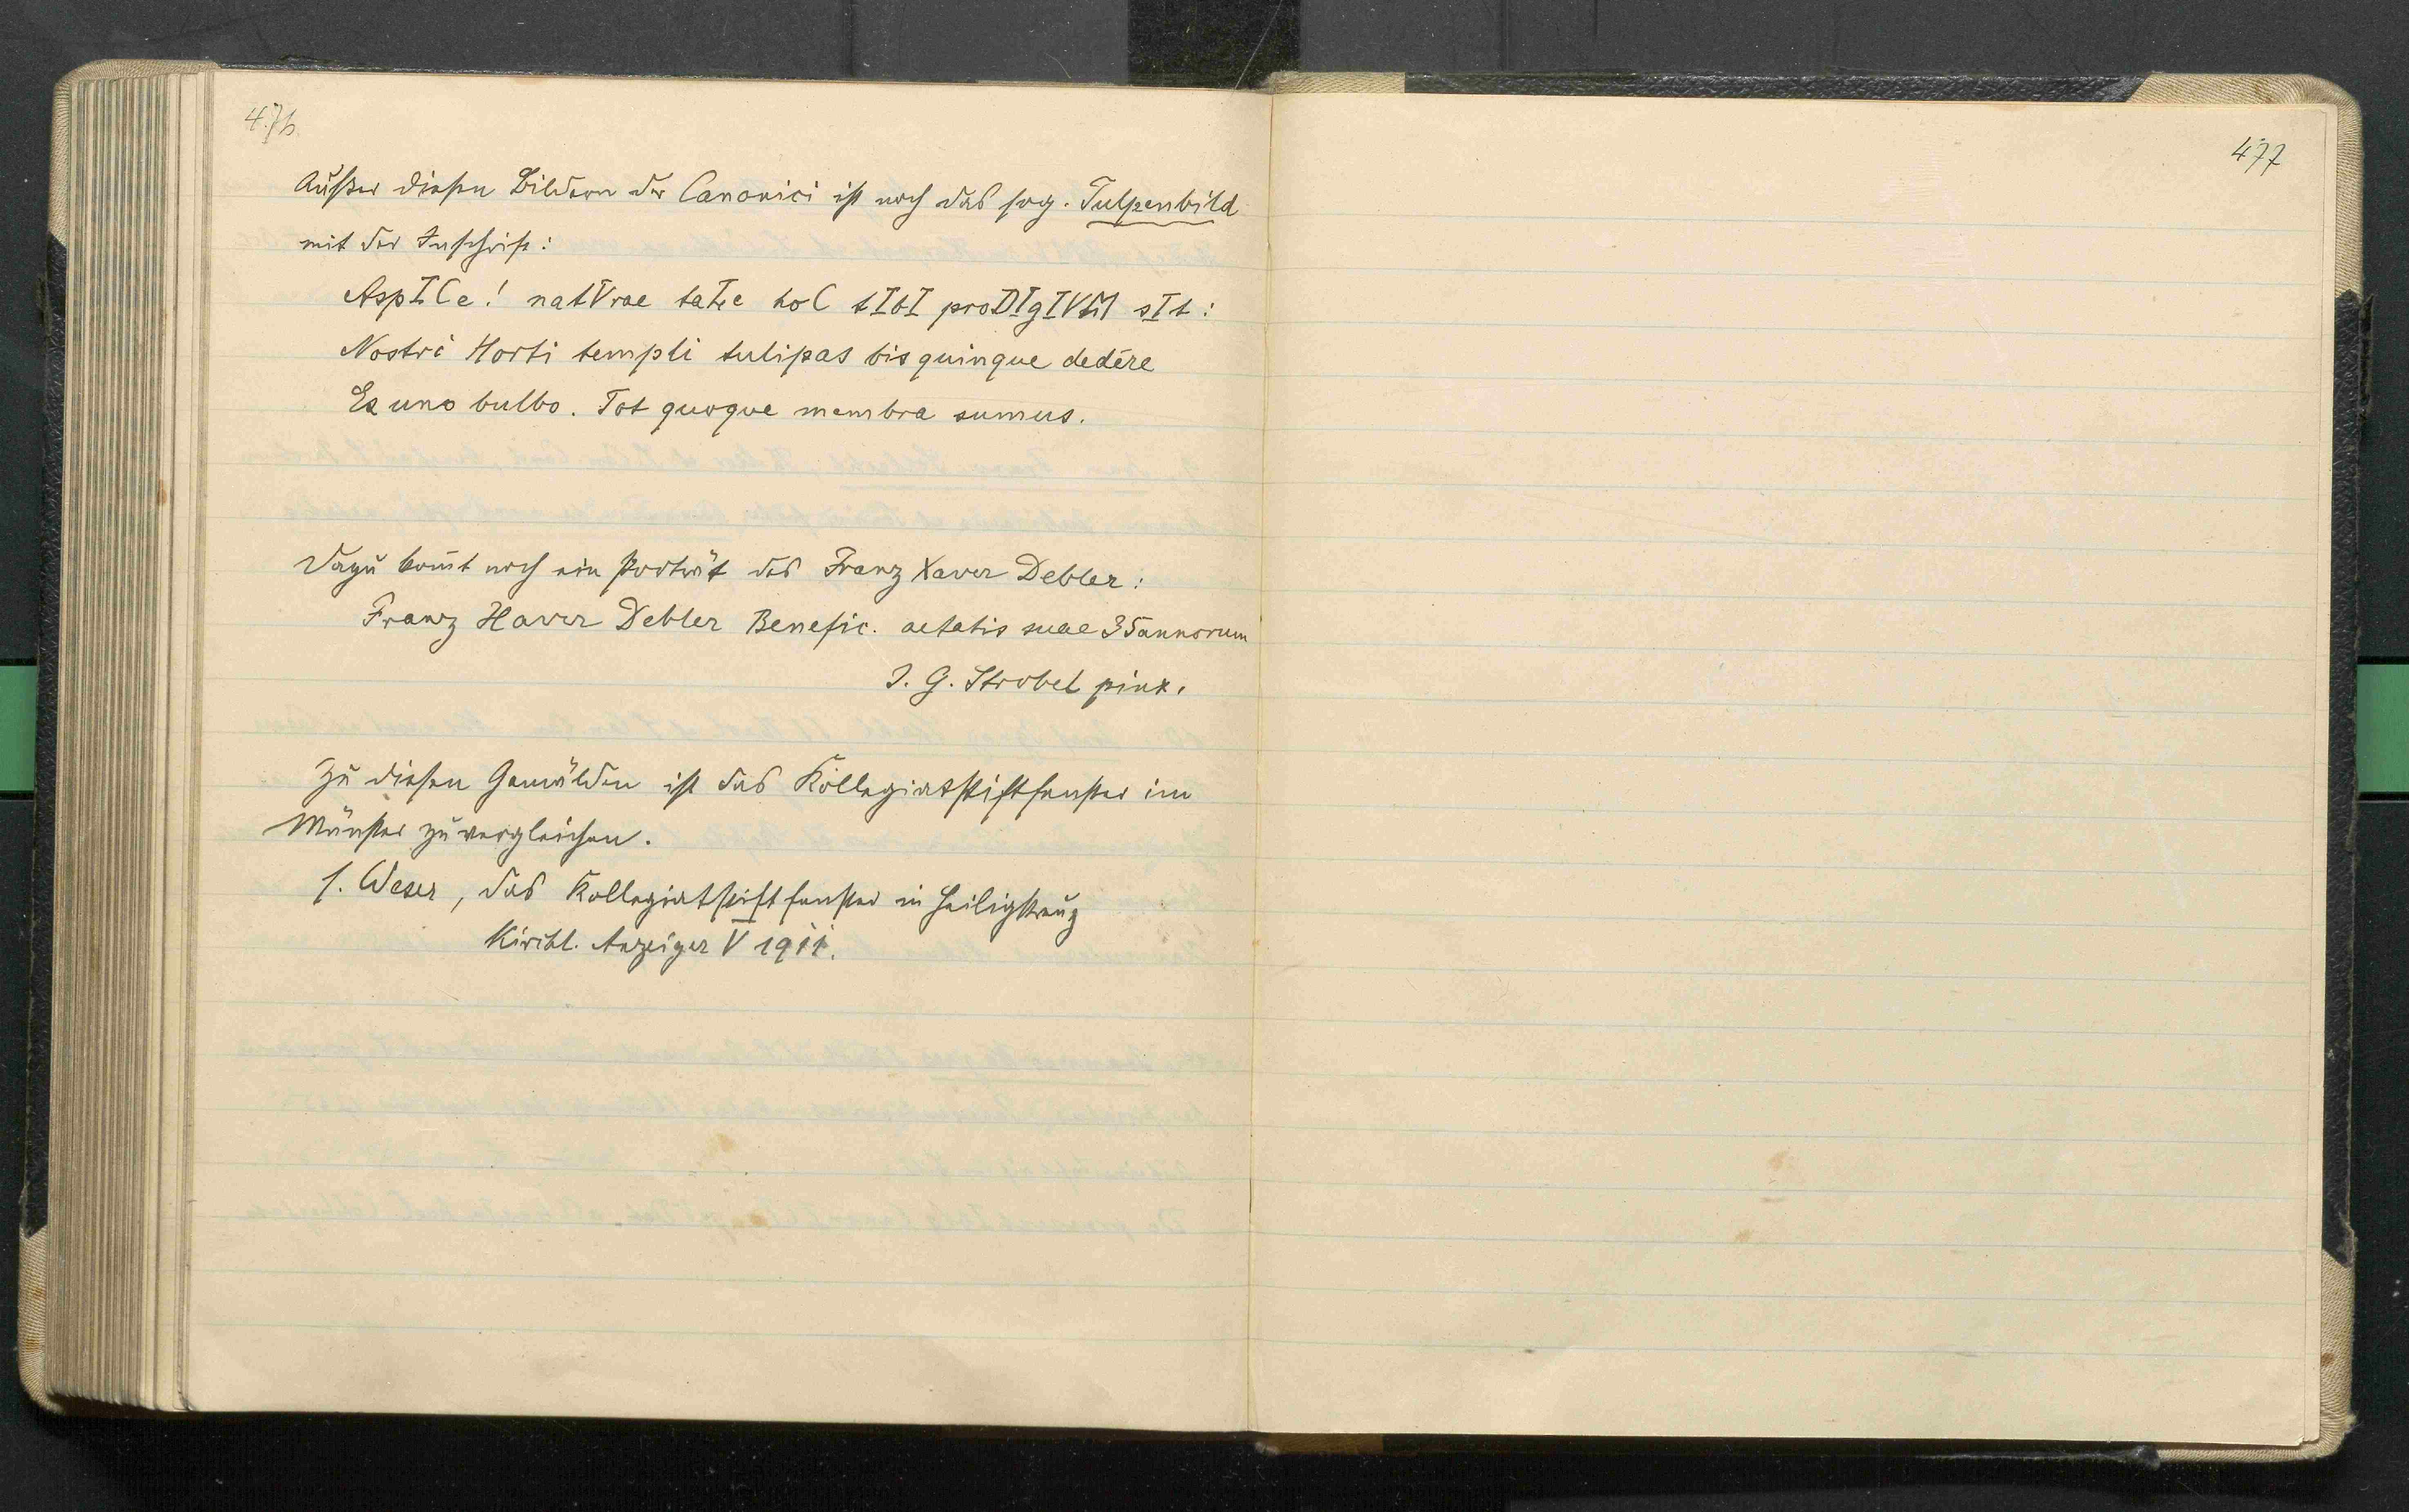 476
Außer diesen Bildern der Canonici ist noch das sog. Tulpenbild
mit der Inschrift:
AspICe! natVrae hoC tIbI proDIgIVM sIt:
Nostri Horti templi tulipas bis quinque dedêre
Ex uno bulbo. Tot quoque membra sumus.
Dazu kom̄t noch ein Porträt des Franz Xaver Debler:
Franz Xaver Debler Benefic. aetatis suae 35 annorum
J. G. Strobel pinx.
Zu diesen Gemälden ist das Kollegiatstiftfenster im
Münster zu vergleichen.
s. Weser, das Kollegiatstiftfenster in Heiligkreuz
Kirchl. Anzeiger V 1911.
477